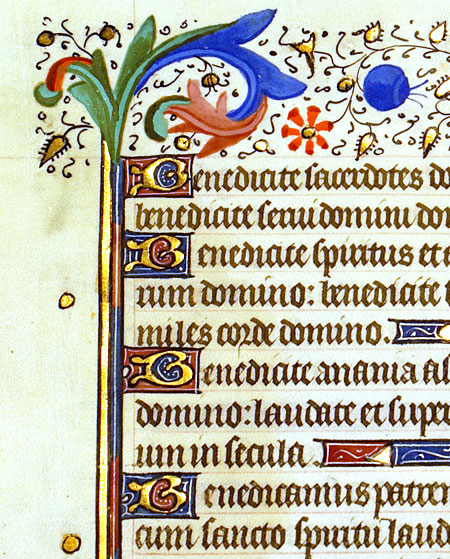 Benedicite sacerdotes do
benedicite serui domini dom
Benedicite spiritus et
rum domino: benedicite
miles corde domino.
Benedicite anania as
domino: laudate et super
um in secula.
Benedicamus patrem
cum sancto spiritu laud